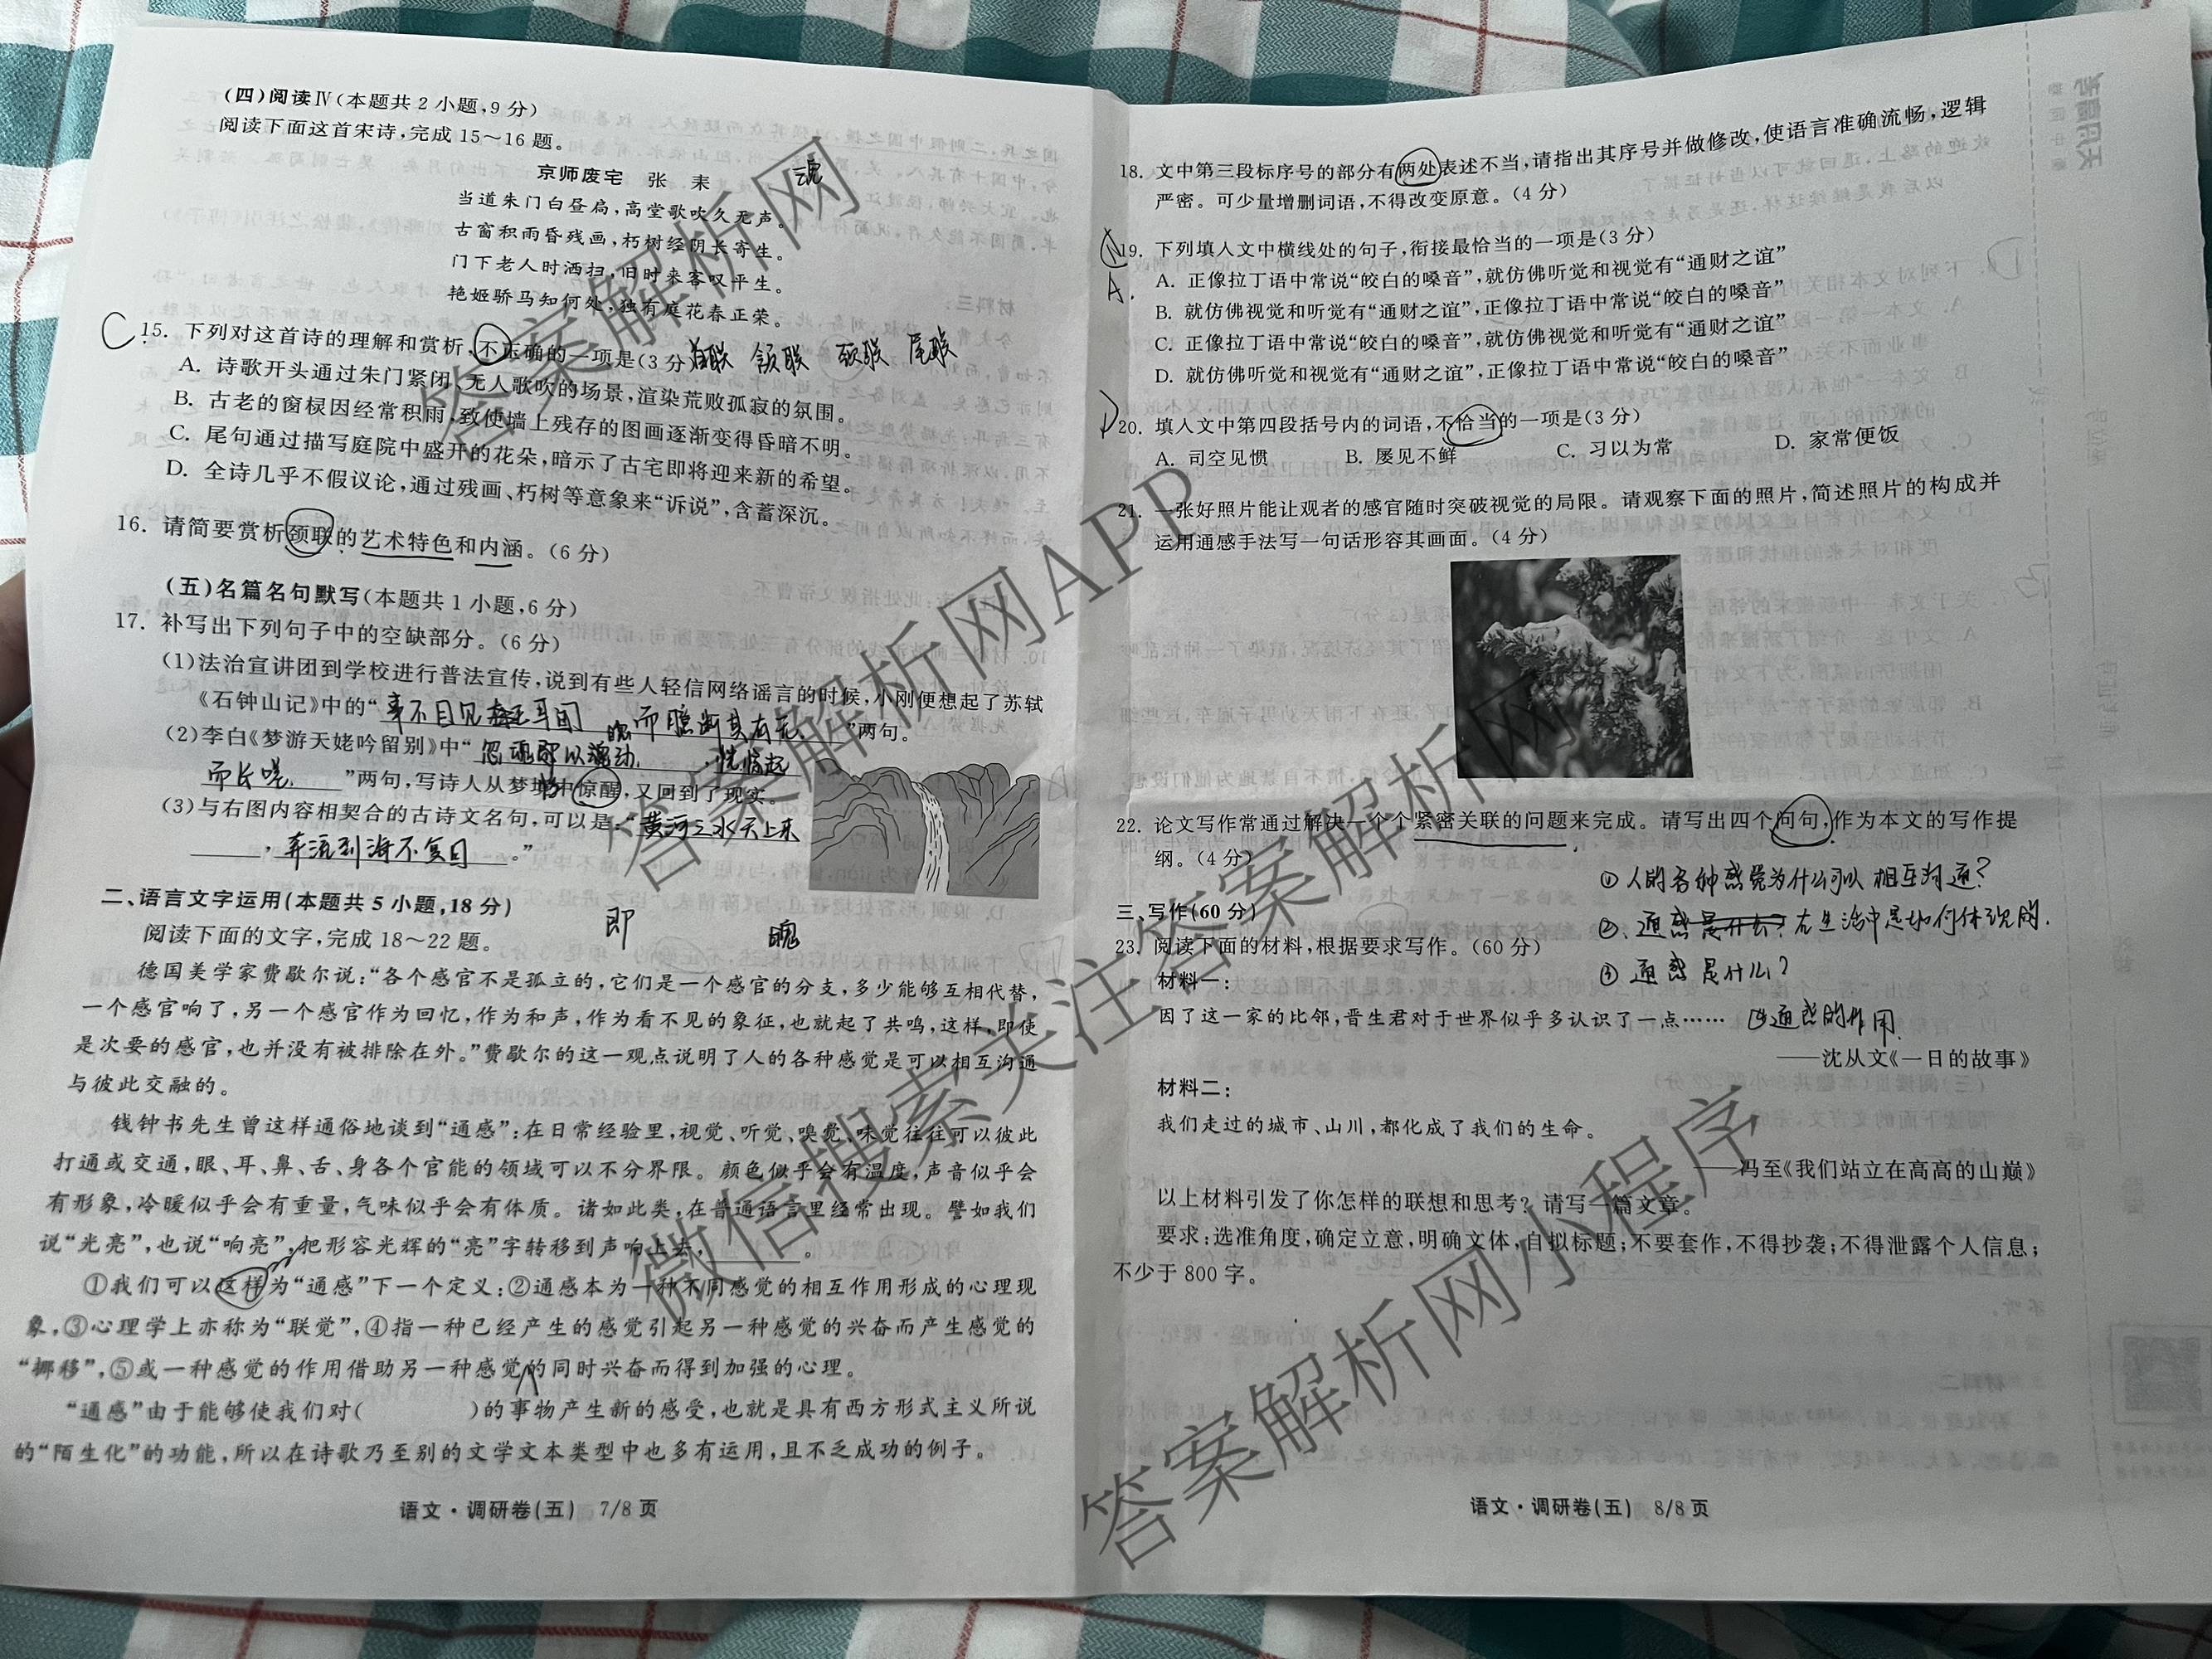 (四)阅读Ⅳ(本题共2小题,9分)
阅读下面这首宋诗,完成15～16题。
京师废宅 张耒
魂
当道朱门白昼扃,高堂歌吹久无声。
古窗积雨昏残画,朽树经阴长寄生。
门下老人时洒扫,旧时来客叹平生。
艳姬骄马知何处,独有庭花春正荣。
C 15. 下列对这首诗的理解和赏析,不正确的一项是(3分 首联 颔联 颈联 尾联
A. 诗歌开头通过朱门紧闭、无人歌吹的场景,渲染荒败孤寂的氛围。
B. 古老的窗棂因经常积雨,致使墙上残存的图画逐渐变得昏暗不明。
C. 尾句通过描写庭院中盛开的花朵,暗示了古宅即将迎来新的希望。
D. 全诗几乎不假议论,通过残画、朽树等意象来“诉说”,含蓄深沉。
16. 请简要赏析颈联的艺术特色和内涵。(6分)
(五)名篇名句默写(本题共1小题,6分)
17. 补写出下列句子中的空缺部分。(6分)
(1)法治宣讲团到学校进行普法宣传,说到有些人轻信网络谣言的时候,小刚便想起了苏轼
《石钟山记》中的“事不目见耳闻 而臆断其有无 ”两句。
(2)李白《梦游天姥吟留别》中“忽魂悸以魄动,恍惊起
而长嗟 ”两句,写诗人从梦境中惊醒,又回到了现实。
(3)与右图内容相契合的古诗文名句,可以是:“黄河之水天上来
,奔流到海不复回。”
二、语言文字运用(本题共5小题,18分)
即 魄
阅读下面的文字,完成18～22题。
德国美学家费歇尔说:“各个感官不是孤立的,它们是一个感官的分支,多少能够互相代替,
一个感官响了,另一个感官作为回忆,作为和声,作为看不见的象征,也就起了共鸣,这样,即使
是次要的感官,也并没有被排除在外。”费歇尔的这一观点说明了人的各种感觉是可以相互沟通
与彼此交融的。
钱钟书先生曾这样通俗地谈到“通感”:在日常经验里,视觉、听觉、嗅觉、味觉往往可以彼此
打通或交通,眼、耳、鼻、舌、身各个官能的领域可以不分界限。颜色似乎会有温度,声音似乎会
有形象,冷暖似乎会有重量,气味似乎会有体质。诸如此类,在普通语言里经常出现。譬如我们
说“光亮”,也说“响亮”,把形容光辉的“亮”字转移到声响上去, 。
①我们可以这样为“通感”下一个定义:②通感本为一种不同感觉的相互作用形成的心理现
象,③心理学上亦称为“联觉”,④指一种已经产生的感觉引起另一种感觉的兴奋而产生感觉的
“挪移”,⑤或一种感觉的作用借助另一种感觉的同时兴奋而得到加强的心理。
“通感”由于能够使我们对( )的事物产生新的感受,也就是具有西方形式主义所说
的“陌生化”的功能,所以在诗歌乃至别的文学文本类型中也多有运用,且不乏成功的例子。
语文·调研卷(五) 7/8页
18. 文中第三段标序号的部分有两处表述不当,请指出其序号并做修改,使语言准确流畅,逻辑
严密。可少量增删词语,不得改变原意。(4分)
19. 下列填入文中横线处的句子,衔接最恰当的一项是(3分)
A.
A. 正像拉丁语中常说“皎白的嗓音”,就仿佛听觉和视觉有“通财之谊”
B. 就仿佛视觉和听觉有“通财之谊”,正像拉丁语中常说“皎白的嗓音”
C. 正像拉丁语中常说“皎白的嗓音”,就仿佛视觉和听觉有“通财之谊”
D. 就仿佛听觉和视觉有“通财之谊”,正像拉丁语中常说“皎白的嗓音”
D 20. 填入文中第四段括号内的词语,不恰当的一项是(3分)
A. 司空见惯 B. 屡见不鲜 C. 习以为常 D. 家常便饭
21. 一张好照片能让观者的感官随时突破视觉的局限。请观察下面的照片,简述照片的构成并
运用通感手法写一句话形容其画面。(4分)
22. 论文写作常通过解决一个个紧密关联的问题来完成。请写出四个问句,作为本文的写作提
纲。(4分)
①人的各种感觉为什么可以相互沟通?
②、通感是什么?在生活中是如何体现的.
③通感是什么?
④通感的作用.
三、写作(60分)
23. 阅读下面的材料,根据要求写作。(60分)
材料一:
因了这一家的比邻,晋生君对于世界似乎多认识了一点……
——沈从文《一日的故事》
材料二:
我们走过的城市、山川,都化成了我们的生命。
——冯至《我们站立在高高的山巅》
以上材料引发了你怎样的联想和思考?请写一篇文章。
要求:选准角度,确定立意,明确文体,自拟标题;不要套作,不得抄袭;不得泄露个人信息;
不少于800字。
语文·调研卷(五) 8/8页
答案解析网
微信搜索关注答案解析网小程序
答案解析网APP